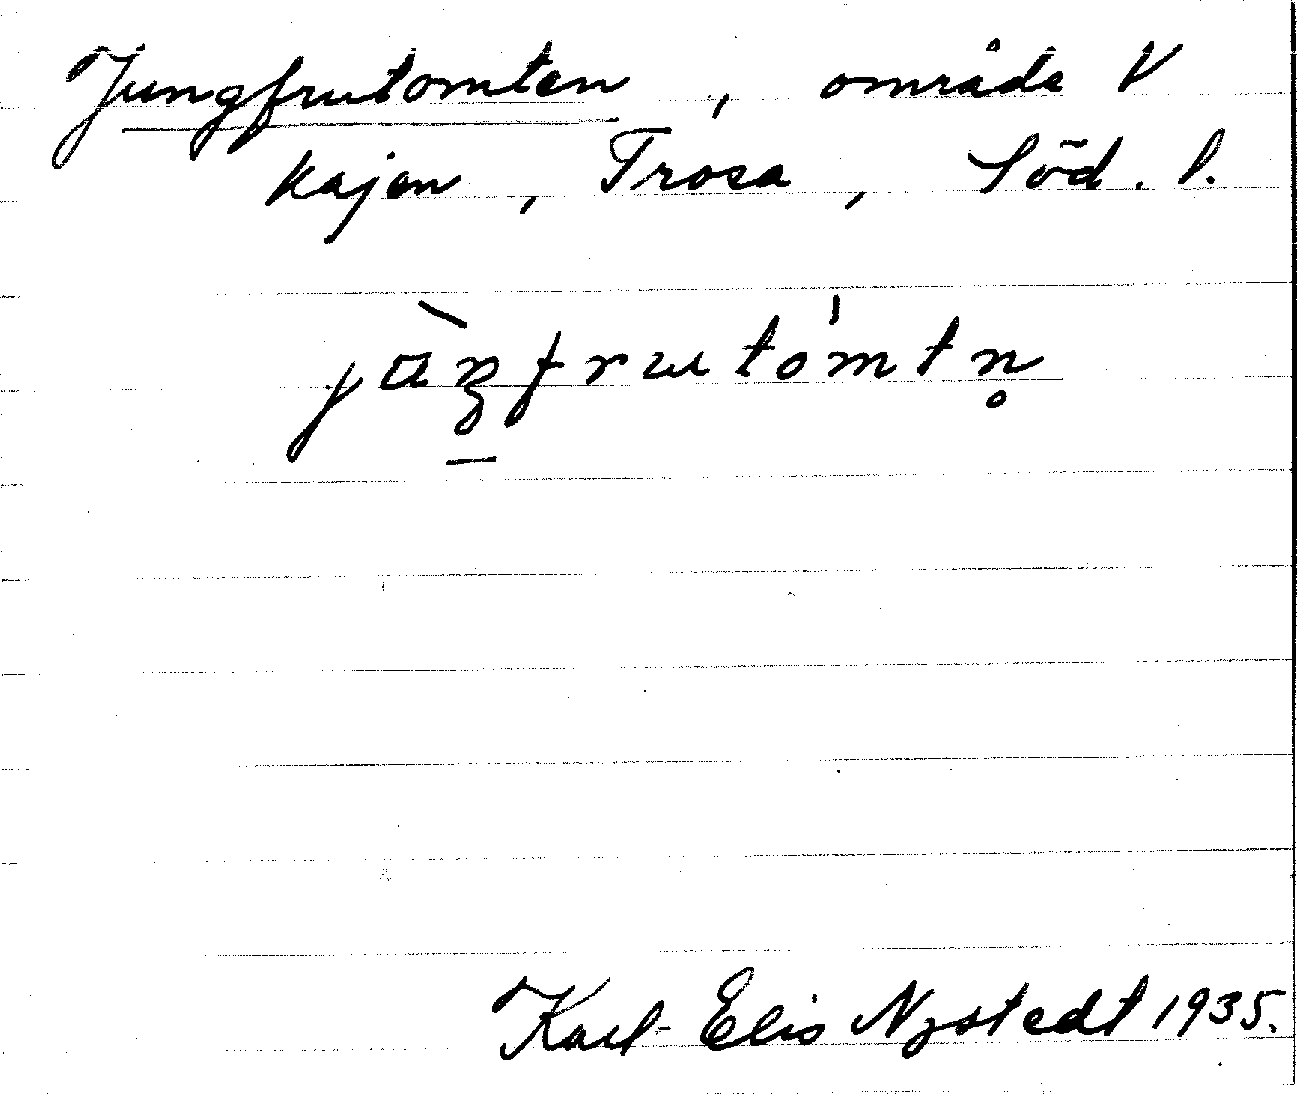 Jungfrutomten, område V
kajen, Trosa, Söd. l.
jɷ̀ŋfrutómtn̥
Karl-Elis Nystedt 1935.